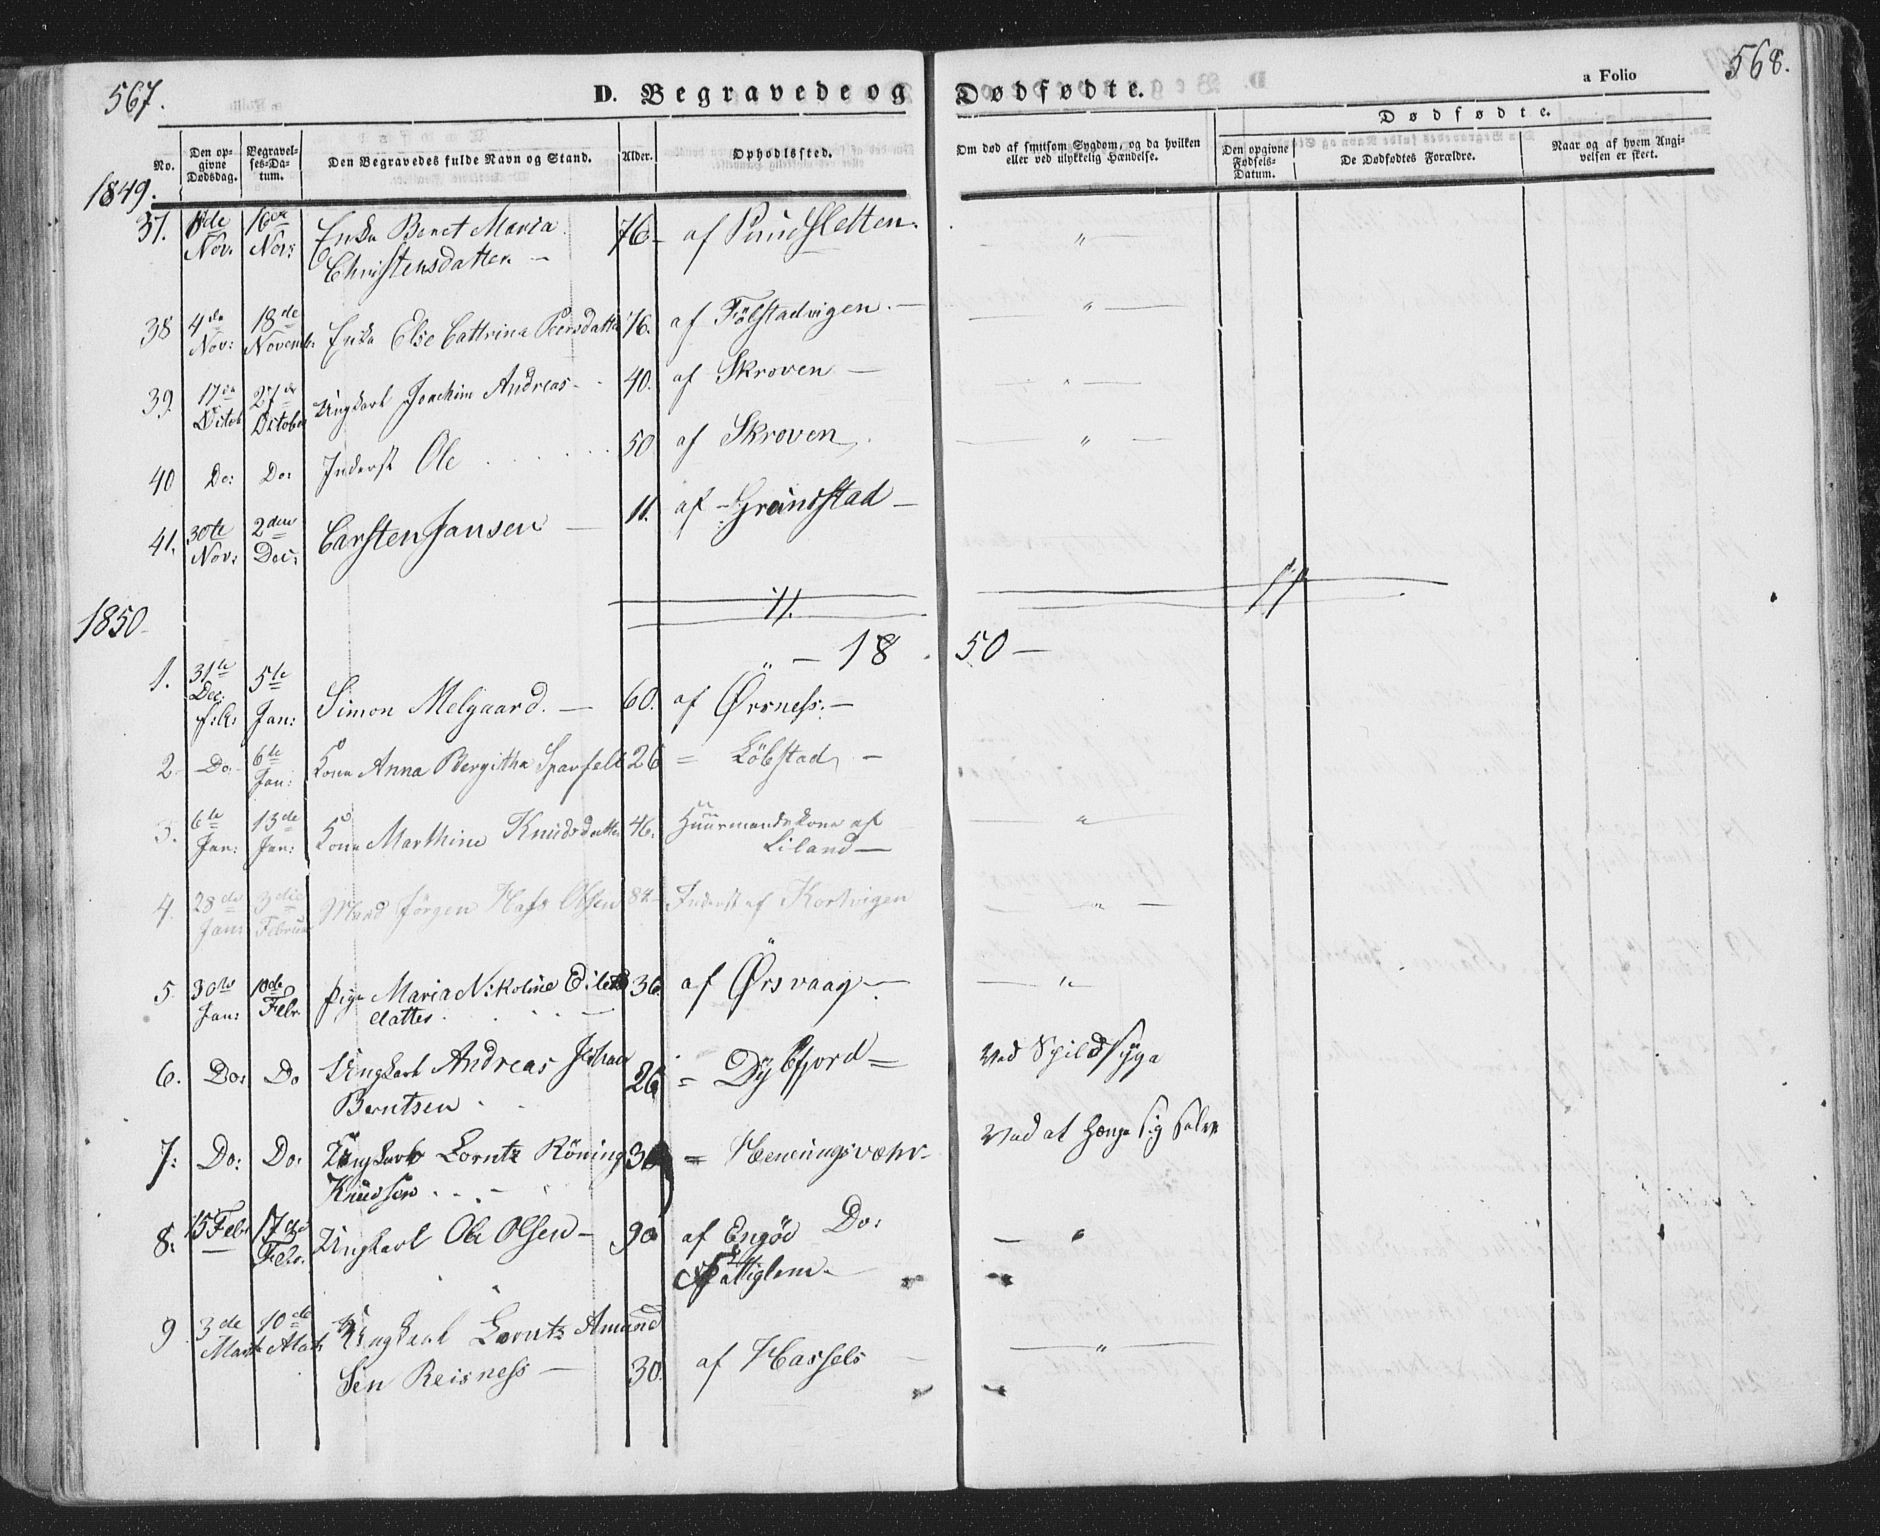 567.
D. Begravede og Dødfødte.
a Folio
568.
No.
Den opgivne Dødsdag.
Begravelses-Datum.
Den Begravedes fulde Navn og Stand.
Alder.
Opholdssted.
Om død af smitsom Sygdom, og da hvilken eller ved ulykkelig Hændelse.
Dødfødte.
Den opgivne Fødsels-Datum.
De Dødfødtes Forældre.
Naar og af hvem Angivelsen er skeet.
1849.
37. Nov. Nov: Enka Beret Maria 76 af
Christensdatter —
38 4de Nov: 18de Novemb: Enka Else Cattrina Pedersdatter 76. af Fölstadvigen. — "
39. 17de Octob 27de October Ungkarl Joachim Andreas 40. af Skroven — "
40 Do: Do: Inderst Ole 50 af Skroven. "
41. 30te Nov: 2den Dec: Carsten Jansen — 11. af Grundstad —
1850.
— 18 50 —
1. 31te Dec: f:A: 5te Jan: Simon Melgaard. — 60. af Ørsness. —
2 Do. 6te Jan: Kone Anna Bergitha 26 = Löbstad —
3. 6te Jan: 13de Jan: Kone Marthine Knudsdatter 46. Huusmandskone af "
Liland —
4. 28de Jan: 3die Februar Mand Jörgen Olsen 84 Inderst af Kortvigen "
5 30te Jan: 10de Febr. Pige Maria Nikoline 36 af Ørsvaag — "
datter
6. Do: Do Ungkarl Andreas Johan 26 = Dybfjord = Ved Spildsyge
Berntsen
7: Do: Do: Ungkarl Lorntz Röning = Henningsvær Ved at hænge sig selv
Knudsen
8: 15 Febr 17de Febr. Ungkarl Ole Olsen — 90 af Do: "
9 3de Marts 10de Ungkarl Lorntz Amund
sen Reisness — 30. af Hassels — "